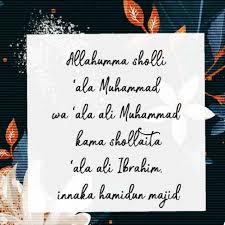 Allahumma sholli
'ala Muhammad
wa 'ala ali Muhammad
kama shollaita
'ala ali Ibrahim.
innaka hamidun majid